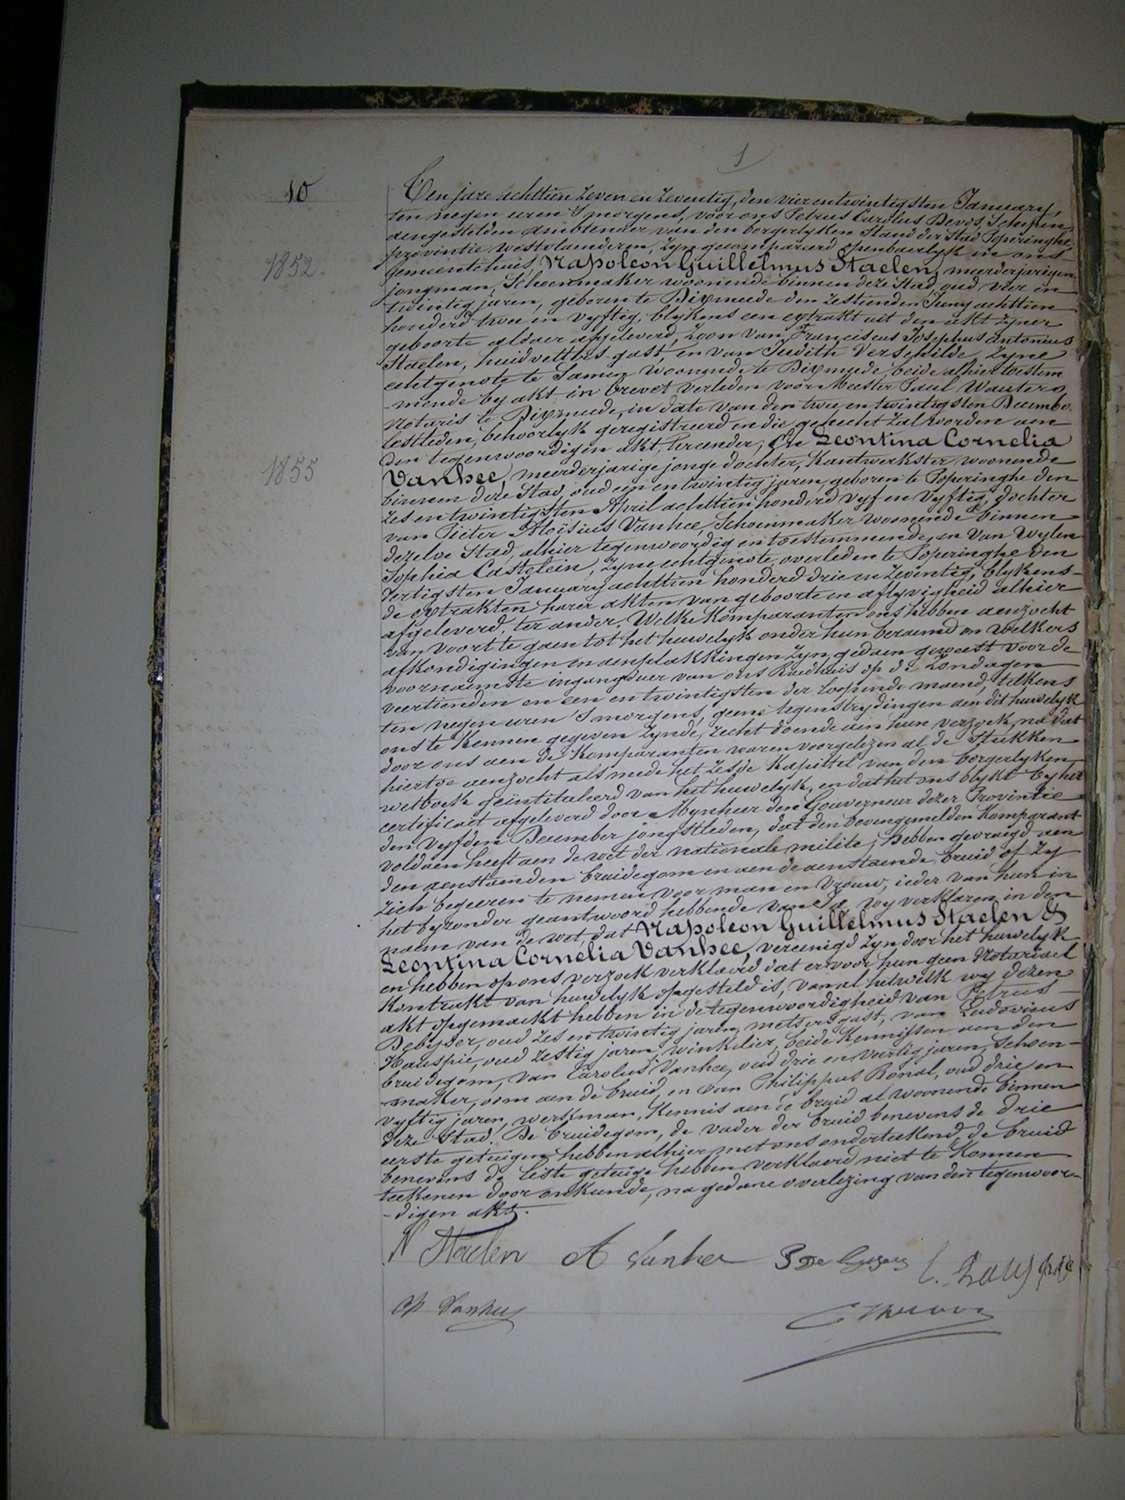 1
10
Ten jare achttien zeven en zeventig, den vier en twintigsten January,
ten negen uren 's morgens, voor ons Petrus Carolus Devos, Schepen,
aengestelden ambtenaer van den borgerlyken Stand der Stad Poperinghe,
provintie Westvlaenderen, zyn gecompareerd openbaerlyk in ons
1852.
gemeentehuis, Napoleon Guillelmus Staelen, meerderjarigen
jongman, Schoenmaker woonende binnen deze Stad, oud vier en
twintig jaren, geboren te Dixmude den zestienden Juny achttien
honderd twee en vyftig, blykens een extrakt uit den akt zyner
geboorte aldaer afgeleverd, zoon van Franciscus Josephus Antonius
Staelen, huidvettersgast en van Judith Verschilde, zyne
echtgenote te Samen woonende te Dixmude, beide alhier toestem
-mende by akt in brevet verleden voor Meester Paul Wauters
Notaris te Dixmude, in date van den twee en twintigsten December
lestleden, behoorlyk geregistreerd en die gehecht zal worden aen
den tegenwoordigen akt, ter eender; En Leontina Cornelia
1855
Vanhee, meerderjarige jonge dochter, Kantwerkster, woonende
binnen deze Stad, oud een en twintig jaren, geboren te Poperinghe den
zes en twintigsten April achttien honderd vyf en vyftig, dochter
van Pieter Aloïsius Vanhee, Schoenmaker woonende binnen
dezelve Stad, alhier tegenwoordig en toestemmende, en van wylen
Sophia Castelein, zyne echtgenote, overleden te Poperinghe den
dertigsten January achttien honderd drie en zeventig, blykens
de extrakten harer akten van geboorte en aflyvigheid alhier
afgeleverd, ter ander. Welke Komparanten ons hebben aenzocht
van voort te gaen tot het huwelyk onder hun beraemd en welkers
afkondigingen en aenplakkingen zyn gedaen geweest voor de
voornaemste ingangdeur van ons Raedhuis op de Zondagen
veertienden en een en twintigsten der loopende maend, telkens
ten negen uren 's morgens, geene tegenstrydingen aen dit huwelyk
ons te Kennen gegeven zynde, recht doende aen hun verzoek, na dat
door ons aen de Komparanten waren voorgelezen al de Stukken
hiertoe aenzocht als mede het zesde Kapittel van den borgerlyken
wetboek geïntituleerd van het huwelyk, en dat het ons blykt by het
certificaet afgeleverd door Mynheer den Gouverneur dezer Provintie
den vyfden December jongstleden, dat den bovengemelden Komparant
voldaen heeft aen de wet der nationale militie; hebben gevraegd aen
den aenstaenden bruidegom en aen de aenstaende bruid of zy
zich begeeren te nemen voor man en vrouw; ieder van hun in
het byzonder geantwoord hebbende van Ja, wy verklaren in den
naem van de wet, dat Napoleon Guillelmus Staelen &
Leontina Cornelia Vanhee, vereenigd zyn door het huwelyk
en hebben op ons verzoek verklaerd dat er voor hun geen Notariael
Kontrakt van huwelyk opgesteld is, van al hetwelk wy dezen
akt opgemaekt hebben in de tegenwoordigheid van Petrus
oud zes en twintig jaren, metsersgast, van Ludovicus
Hauspie, oud zestig jaren, winkelier, beide Kennissen aen den
bruidegom, van Carolus Vanhee, oud drie en veertig jaren, schoen-
-maker, oom aen de bruid, en van Philippus Bonal, oud drie en
vyftig jaren, werkman, Kennis aen de bruid al woonende binnen
deze Stad. De bruidegom, de vader der bruid benevens de drie
eerste getuigen hebben alhier met ons onderteekend, de bruid
benevens de leste getuige hebben verklaerd niet te Konnen
teekenen door onkunde, na gedane overlezing van den tegenwoor-
-digen akt.
N Staelen A Vanhee
Ch Vanhee